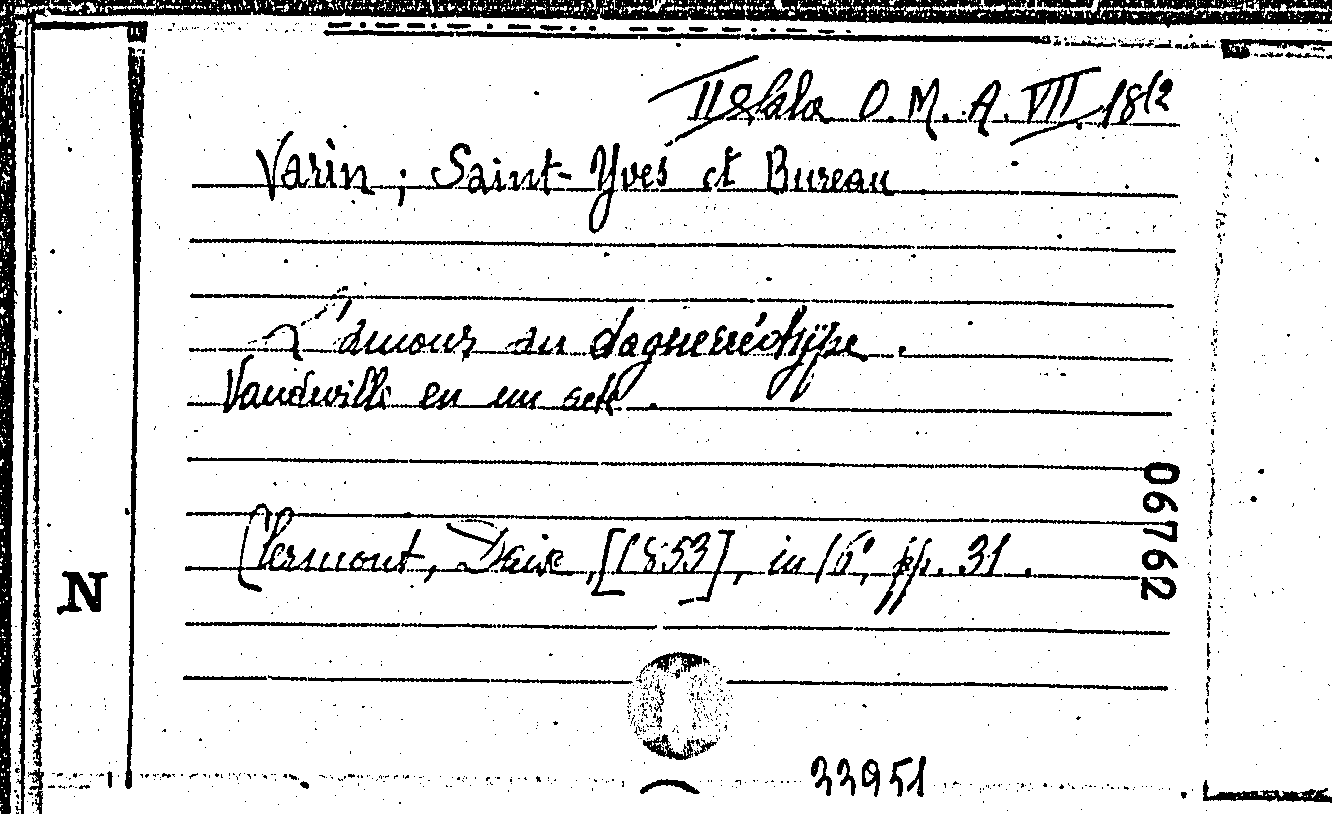 II Sala O. M. A. VII. 18/2
Varin ; Saint-Yves et Bureau
L'amour au daguerréotype.
Vaudeville en un acte.
Clermont, Daix, [1853], in 16°, pp. 31.
06762
N
33951